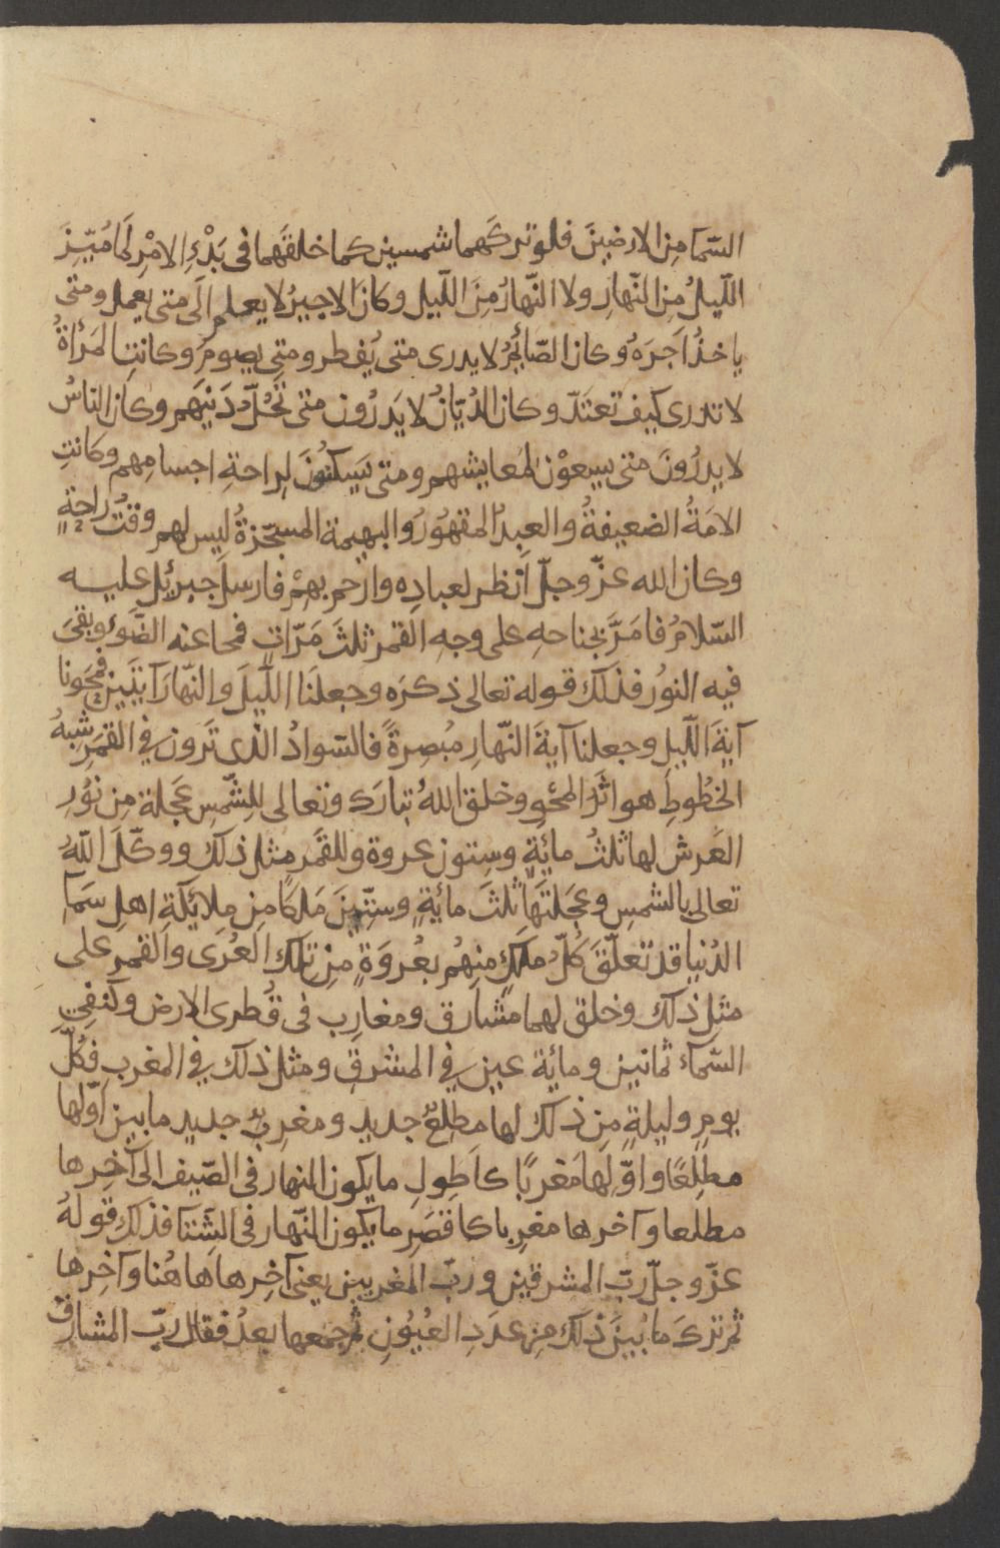 السّما مِن الارضينَ فلو تركَهما شمسين كما خلقَهما فى بَدْءِ الامْرِ لَما مُيِّزَ
اللّيلُ مِن النّهارِ ولا النّهارُ مِنَ اللّيل وكانَ الاجيرُ لا يعلم الَى متى يعمل ومتى
ياخذُ اَجرَهُ وكان الصّائِمُ لا يدرى متى يُفطر ومتى يصومُ وكانتِ المَرْاةُ
لا تدرى كيف تعتَدّ وكان الدُيّانُ لا يَدرُون متى تَحُلّ دَينَهم وكان الناسُ
لا يدرُونَ متى يسعوْن لمعايشهم ومتى يَسكنُونَ لِراحةِ اجسامِهم وكانتِ
الامَةُ الضعيفةُ والعبدُ المقهُورُ والبهيمة المسخّرةُ ليس لهم وقتُ راحةٍ
وكان الله عزّ وجلّ اَنظر لعبادِه وارْحم بهِمْ فارسلَ جبرئِل عليه
السّلامُ فامَرَّ بجناحهِ على وجهِ القمر ثلثَ مَرّاتٍ فمحا عنه الضَّوءَ وبقىَ
فيه النورُ فذلك قوله تعالى ذكرَه وجعلنَا اللّيلَ والنّهارَ آيتَين فَمَحَونا
آيةَ اللّيلِ وجعلنا آيةَ النّهارِ مُبصِرةً فالسّوادُ الّذى تَرون في القمَرِ شِبهُ
الخطُوطِ هو اثَرُ المحْوِ وخلق اللهُ تبارَك وتعالى للشّمسِ عَجلة مِن نُورِ
العَرش لها ثلثُ مائةٍ وستون عروة وللقمَر مثل ذلك ووكّلَ اللّهُ
تعالى بالشمسِ وعَجَلتَها ثلثَ مائةٍ وستّينَ مَلَكًا مِن ملائِكَةِ اهلِ سَماءِ
الدُنيا قد تعلّقَ كلّ ملكٍ منهُم بعُروَةٍ مِن تلك العُرَى والقمرِ على
مثلِ ذلك وخلق لهما مشارق ومغارِب فى قُطرى الارض وكنفَىِ
السّماء ثمانين ومائة عين في المشرق ومثل ذلك في المغربِ فكُلّ
يومٍ وليلةٍ مِن ذلك لها مَطلِعٌ جديد ومغرِبٌ جديد ما بين اوّلها
مطلِعًا واوّلِها مَغربًا كاَطولِ ما يكون النهار فى الصّيف الى آخِرها
مطلعا وآخرها مغرِبا كاقصَرِ ما يكون النّهار فى الشِتَا فذلك قولهُ
عزّ وجلّ ربّ المشرقين وربّ المغربين يعنى آخِرها هاهُنا وآخِرها
ثم تركَ ما بينَ ذلك مِن عدَدِ العُيُونِ ثم جمعها بعدُ فقال ربّ المشارق